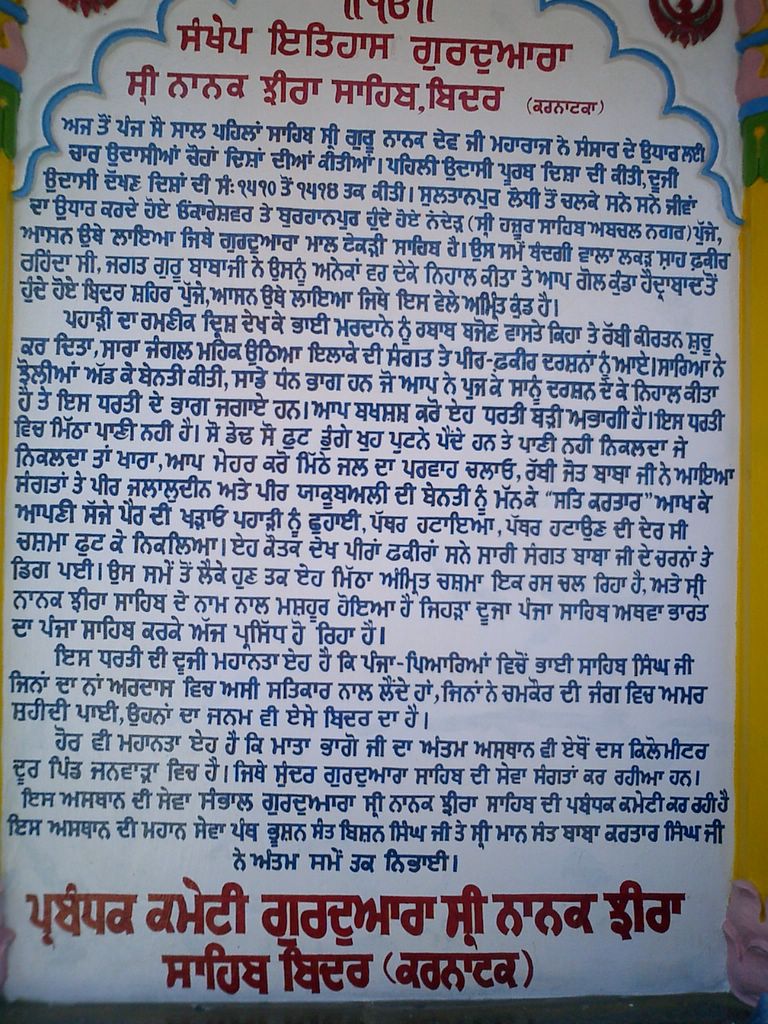 ॥੧ਓ॥
ਸੰਖੇਪ ਇਤਿਹਾਸ ਗੁਰਦੁਆਰਾ
ਸ੍ਰੀ ਨਾਨਕ ਝੀਰਾ ਸਾਹਿਬ,ਬਿਦਰ (ਕਰਨਾਟਕਾ)
ਅਜ ਤੋਂ ਪੰਜ ਸੌ ਸਾਲ ਪਹਿਲਾਂ ਸਾਹਿਬ ਸ੍ਰੀ ਗੁਰੂ ਨਾਨਕ ਦੇਵ ਜੀ ਮਹਾਰਾਜ ਨੇ ਸੰਸਾਰ ਦੇ ਉਧਾਰ ਲਈ
ਚਾਰ ਉਦਾਸੀਆਂ ਚੋਹਾਂ ਦਿਸ਼ਾਂ ਦੀਆਂ ਕੀਤੀਆਂ। ਪਹਿਲੀ ਉਦਾਸੀ ਪੂਰਬ ਦਿਸ਼ਾ ਦੀ ਕੀਤੀ,ਦੂਜੀ
ਉਦਾਸੀ ਦੱਖਣ ਦਿਸ਼ਾਂ ਦੀ ਸੰ: ੧੫੧੦ ਤੋਂ ੧੫੧੪ ਤਕ ਕੀਤੀ। ਸੁਲਤਾਨਪੁਰ ਲੋਧੀ ਤੋਂ ਚਲਕੇ ਸਨੇ ਸਨੇ ਜੀਵਾਂ
ਦਾ ਉਧਾਰ ਕਰਦੇ ਹੋਏ ਓਂਕਾਰੇਸ਼ਵਰ ਤੇ ਬੁਰਹਾਨਪੁਰ ਹੁੰਦੇ ਹੋਏ ਨੰਦੇੜ (ਸ੍ਰੀ ਹਜ਼ੂਰ ਸਾਹਿਬ ਅਬਚਲ ਨਗਰ) ਪੁੱਜੇ,
ਆਸਨ ਉਥੇ ਲਾਇਆ ਜਿਥੇ ਗੁਰਦੁਆਰਾ ਮਾਲ ਟੇਕੜੀ ਸਾਹਿਬ ਹੈ। ਉਸ ਸਮੇਂ ਬੰਦਗੀ ਵਾਲਾ ਲਕੜ ਸ਼ਾਹ ਫ਼ਕੀਰ
ਰਹਿੰਦਾ ਸੀ, ਜਗਤ ਗੁਰੂ ਬਾਬਾਜੀ ਨੇ ਉਸਨੂੰ ਅਨੇਕਾਂ ਵਰ ਦੇਕੇ ਨਿਹਾਲ ਕੀਤਾ ਤੇ ਆਪ ਗੋਲ ਕੁੰਡਾ ਹੈਦ੍ਰਾਬਾਦ ਤੋਂ
ਹੁੰਦੇ ਹੋਏ ਬਿਦਰ ਸ਼ਹਿਰ ਪੁੱਜੇ,ਆਸਨ ਉਥੇ ਲਾਇਆ ਜਿਥੇ ਇਸ ਵੇਲੇ ਅਮ੍ਰਿਤ ਕੁੰਡ ਹੈ।
ਪਹਾੜੀ ਦਾ ਰਮਣੀਕ ਦ੍ਰਿਸ਼ ਦੇਖ ਕੇ ਭਾਈ ਮਰਦਾਨੇ ਨੂੰ ਰਬਾਬ ਬਜੌਣ ਵਾਸਤੇ ਕਿਹਾ ਤੇ ਰੱਬੀ ਕੀਰਤਨ ਸ਼ੁਰੂ
ਕਰ ਦਿਤਾ,ਸਾਰਾ ਜੰਗਲ ਮਹਿਕ ਉਠਿਆ ਇਲਾਕੇ ਦੀ ਸੰਗਤ ਤੇ ਪੀਰ-ਫ਼ਕੀਰ ਦਰਸ਼ਨਾਂ ਨੂੰ ਆਏ।ਸਾਰਿਆ ਨੇ
ਝੋਲੀਆਂ ਅੱਡ ਕੇ ਬੇਨਤੀ ਕੀਤੀ, ਸਾਡੇ ਧੰਨ ਭਾਗ ਹਨ ਜੋ ਆਪ ਨੇ ਪੁਜ ਕੇ ਸਾਨੂੰ ਦਰਸ਼ਨ ਦੇ ਕੇ ਨਿਹਾਲ ਕੀਤਾ
ਹੈ ਤੇ ਇਸ ਧਰਤੀ ਦੇ ਭਾਗ ਜਗਾਏ ਹਨ। ਆਪ ਬਖਸ਼ਸ਼ ਕਰੋ ਏਹ ਧਰਤੀ ਬੜੀ ਅਭਾਗੀ ਹੈ। ਇਸ ਧਰਤੀ
ਵਿਚ ਮਿੱਠਾ ਪਾਣੀ ਨਹੀ ਹੈ। ਸੋ ਡੇਢ ਸੌ ਫੁਟ ਡੁੰਗੇ ਖੂਹ ਪੁਟਨੇ ਪੈਂਦੇ ਹਨ ਤੇ ਪਾਣੀ ਨਹੀ ਨਿਕਲਦਾ ਜੇ
ਨਿਕਲਦਾ ਤਾਂ ਖਾਰਾ,ਆਪ ਮੇਹਰ ਕਰੋ ਮਿੱਠੇ ਜਲ ਦਾ ਪਰਵਾਹ ਚਲਾਓ, ਰੱਬੀ ਜੋਤ ਬਾਬਾ ਜੀ ਨੇ ਆਇਆ
ਸੰਗਤਾਂ ਤੇ ਪੀਰ ਜਲਾਲੁਦੀਨ ਅਤੇ ਪੀਰ ਯਾਕੂਬਅਲੀ ਦੀ ਬੇਨਤੀ ਨੂੰ ਮੰਨਕੇ "ਸਤਿ ਕਰਤਾਰ" ਆਖ ਕੇ
ਆਪਣੀ ਸੱਜੇ ਪੈਰ ਦੀ ਖੜਾਓ ਪਹਾੜੀ ਨੂੰ ਛੁਹਾਈ, ਪੱਥਰ ਹਟਾਇਆ, ਪੱਥਰ ਹਟਾਉਣ ਦੀ ਦੇਰ ਸੀ
ਚਸ਼ਮਾ ਫੁਟ ਕੇ ਨਿਕਲਿਆ। ਏਹ ਕੌਤਕ ਦੇਖ ਪੀਰਾਂ ਫ਼ਕੀਰਾਂ ਸਨੇ ਸਾਰੀ ਸੰਗਤ ਬਾਬਾ ਜੀ ਦੇ ਚਰਨਾਂ ਤੇ
ਡਿਗ ਪਈ। ਉਸ ਸਮੇਂ ਤੋਂ ਲੈਕੇ ਹੁਣ ਤਕ ਏਹ ਮਿੱਠਾ ਅੰਮ੍ਰਿਤ ਚਸ਼ਮਾ ਇਕ ਰਸ ਚਲ ਰਿਹਾ ਹੈ, ਅਤੇ ਸ੍ਰੀ
ਨਾਨਕ ਝੀਰਾ ਸਾਹਿਬ ਦੇ ਨਾਮ ਨਾਲ ਮਸ਼ਹੂਰ ਹੋਇਆ ਹੈ ਜਿਹੜਾ ਦੂਜਾ ਪੰਜਾ ਸਾਹਿਬ ਅਥਵਾ ਭਾਰਤ
ਦਾ ਪੰਜਾ ਸਾਹਿਬ ਕਰਕੇ ਅੱਜ ਪ੍ਰਸਿੱਧ ਹੋ ਰਿਹਾ ਹੈ।
ਇਸ ਧਰਤੀ ਦੀ ਦੂਜੀ ਮਹਾਨਤਾ ਏਹ ਹੈ ਕਿ ਪੰਜਾ-ਪਿਆਰਿਆਂ ਵਿਚੋਂ ਭਾਈ ਸਾਹਿਬ ਸਿੰਘ ਜੀ
ਜਿਨਾਂ ਦਾ ਨਾਂ ਅਰਦਾਸ ਵਿਚ ਅਸੀ ਸਤਿਕਾਰ ਨਾਲ ਲੈਂਦੇ ਹਾਂ,ਜਿਨਾਂ ਨੇ ਚਮਕੌਰ ਦੀ ਜੰਗ ਵਿਚ ਅਮਰ
ਸ਼ਹੀਦੀ ਪਾਈ,ਉਹਨਾਂ ਦਾ ਜਨਮ ਵੀ ਏਸੇ ਬਿਦਰ ਦਾ ਹੈ।
ਹੋਰ ਵੀ ਮਹਾਨਤਾ ਏਹ ਹੈ ਕਿ ਮਾਤਾ ਭਾਗੋ ਜੀ ਦਾ ਅੰਤਮ ਅਸਥਾਨ ਵੀ ਏਥੋਂ ਦਸ ਕਿਲੋਮੀਟਰ
ਦੂਰ ਪਿੰਡ ਜਨਵਾੜਾ ਵਿਚ ਹੈ। ਜਿਥੇ ਸੁੰਦਰ ਗੁਰਦੁਆਰਾ ਸਾਹਿਬ ਦੀ ਸੇਵਾ ਸੰਗਤਾਂ ਕਰ ਰਹੀਆ ਹਨ।
ਇਸ ਅਸਥਾਨ ਦੀ ਸੇਵਾ ਸੰਭਾਲ ਗੁਰਦੁਆਰਾ ਸ੍ਰੀ ਨਾਨਕ ਝੀਰਾ ਸਾਹਿਬ ਦੀ ਪਰਬੰਧਕ ਕਮੇਟੀ ਕਰ ਰਹੀ ਹੈ
ਇਸ ਅਸਥਾਨ ਦੀ ਮਹਾਨ ਸੇਵਾ ਪੰਥ ਭੂਸ਼ਨ ਸੰਤ ਬਿਸ਼ਨ ਸਿੰਘ ਜੀ ਤੇ ਸ੍ਰੀ ਮਾਨ ਸੰਤ ਬਾਬਾ ਕਰਤਾਰ ਸਿੰਘ ਜੀ
ਨੇ ਅੰਤਮ ਸਮੇਂ ਤਕ ਨਿਭਾਈ।
ਪ੍ਰਬੰਧਕ ਕਮੇਟੀ ਗੁਰਦੁਆਰਾ ਸ੍ਰੀ ਨਾਨਕ ਝੀਰਾ
ਸਾਹਿਬ ਬਿਦਰ (ਕਰਨਾਟਕ)